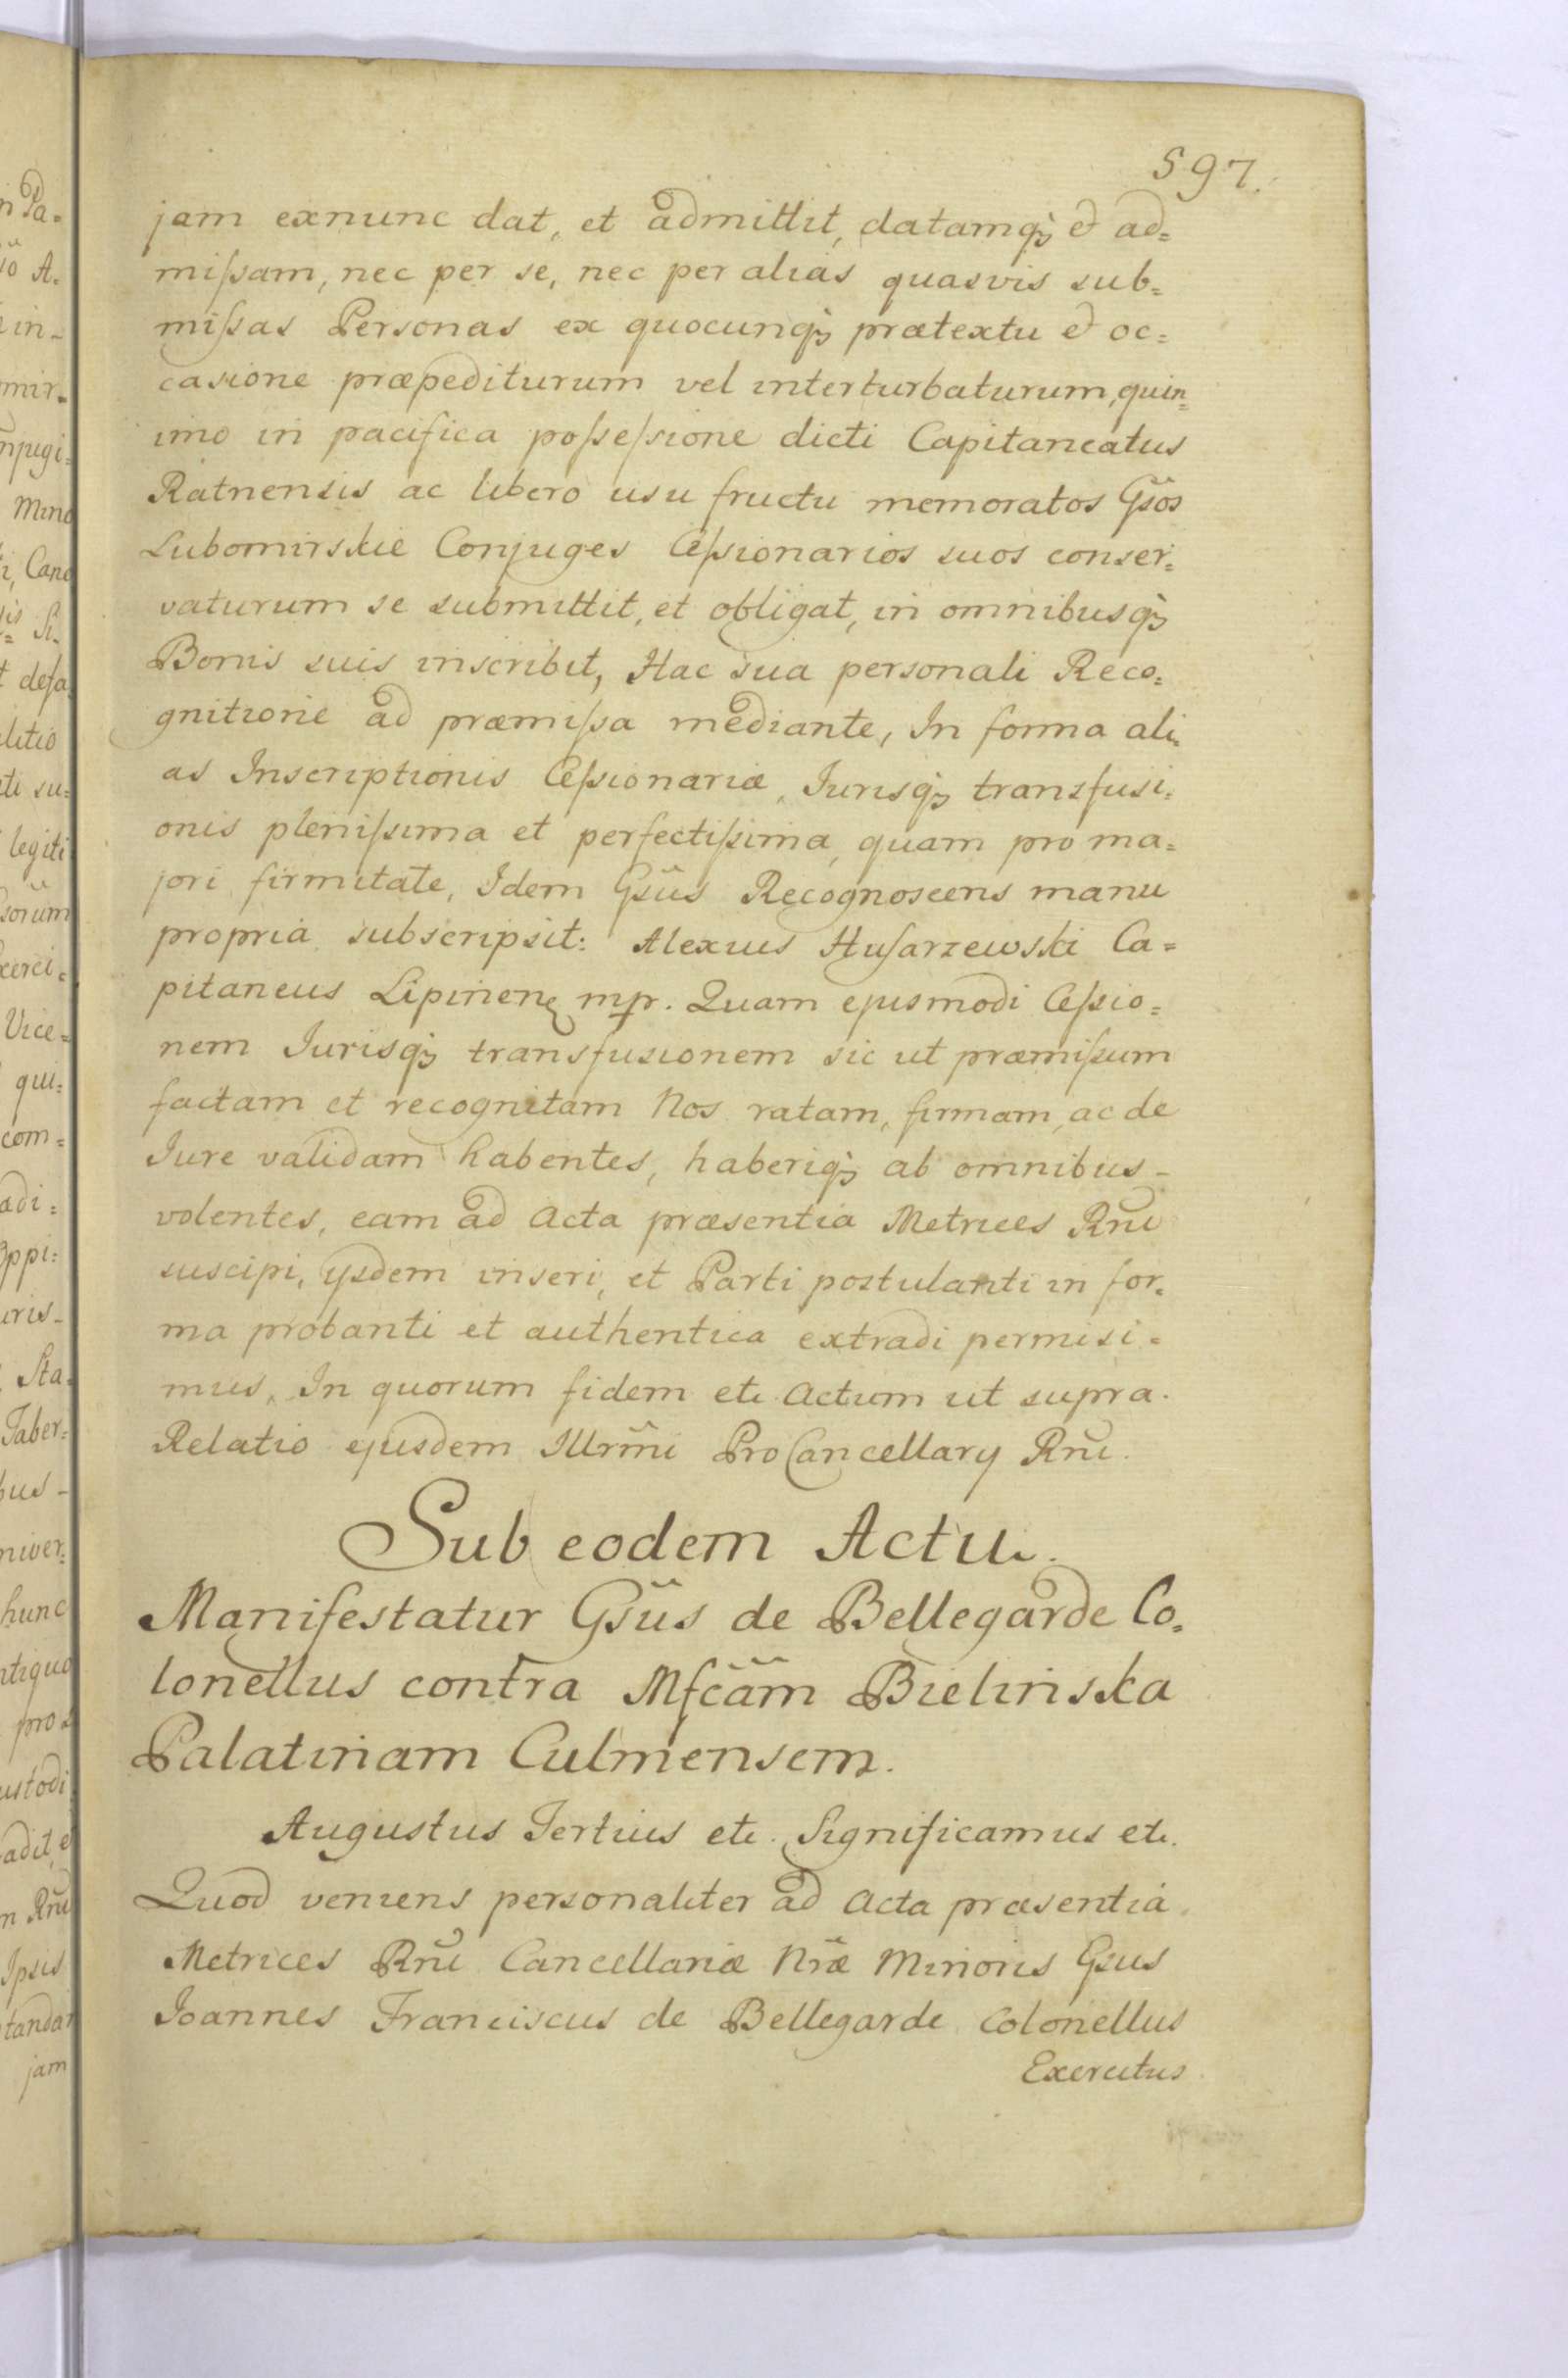 597.
jam exnunc dat, et admittit, datamq̃ et ad=
mißam, nec per se, nec per alias quasvis sub=
mißas Personas ex quocunq̃ prætextu et oc=
casione præpediturum vel interturbaturum, quin=
imo in pacifica poßeßione dicti Capitaneatus
Ratnensis ac libero usu fructu memoratos Gsos
Lubomirskie Conjuges Ceßionarios suos conser=
vaturum se submittit, et obligat, in omnibusq̃
Bonis suis inscribit, Hac sua personali Reco=
gnitione ad præmißa mediante, In forma ali=
as Inscriptionis Ceßionariæ, Jurisq̃ transfusi=
onis plenißima et perfectißima, quam pro ma=
jori firmitate, Idem Gsus Recognoscens manu
propria subscripsit: Alexius Husarzewski Ca=
pitaneus Lipinen̄ mpr. Quam ejusmodi Ceßio=
nem Jurisq̃ transfusionem sic ut præmißum
factam et recognitam Nos ratam, firmam, ac de
Jure validam habentes, haberiq̃ ab omnibus-
volentes, eam ad Acta præsentia Metrices Rñi
suscipi, ijsdem inseri, et Parti postulanti in for=
ma probanti et authentica extradi permisi=
mus, In quorum fidem etc. Actum ut supra.
Relatio ejusdem Illrm̃i ProCancellarij Rñi.
Sub eodem Actu.
Manifestatur Gsũs de Bellegarde Co=
lonellus contra Mfcãm Bielinska
Palatinam Culmensem.
Augustus Tertius etc. Significamus etc.
Quod veniens personaliter ad Acta præsentia
Metrices Rñi Cancellariæ Nr̃æ Minoris Gsus
Joannes Franciscus de Bellegarde Colonellus
Exercitus